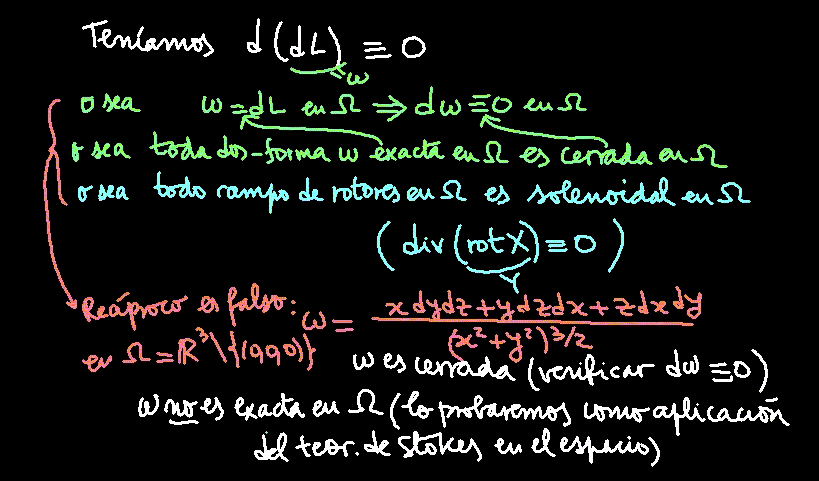 Teníamos d(dL) ≡ 0
= ω
o sea ω = dL en Ω ⇒ dω ≡ 0 en Ω
o sea toda dos-forma ω exacta en Ω es cerrada en Ω
o sea todo campo de rotores en Ω es solenoidal en Ω
( div (rot X) ≡ 0 )
Y
Recíproco es falso: ω = x dy dz + y dz dx + z dx dy
(x² + y²)^3/2
en Ω = ℝ³ \ {(0,0,0)}
ω es cerrada (verificar dω ≡ 0)
ω no es exacta en Ω (lo probaremos como aplicación
del teor. de Stokes en el espacio)